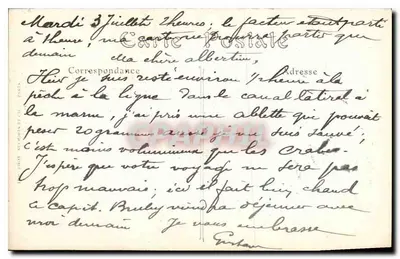 Mardi 3 Juillet 2 heures; le facteur étant parti
à 1 heure, ma carte ne pourra partir que
demain Ma chère albertine,
Carte Postale
Correspondance Adresse
Hier je suis resté environ 1 heure à la
pêche à la ligne dans le canal latéral à
la marne, j'ai pris une ablette qui pouvait
peser 20 grammes suis sauvé;
c'est moins volumineux que les crabes.
J'espère que votre voyage ne sera pas
trop mauvais; ici il fait bien chaud
a capit. Bruley viendra déjeuner avec
moi demain Je vous embrasse
Gustave